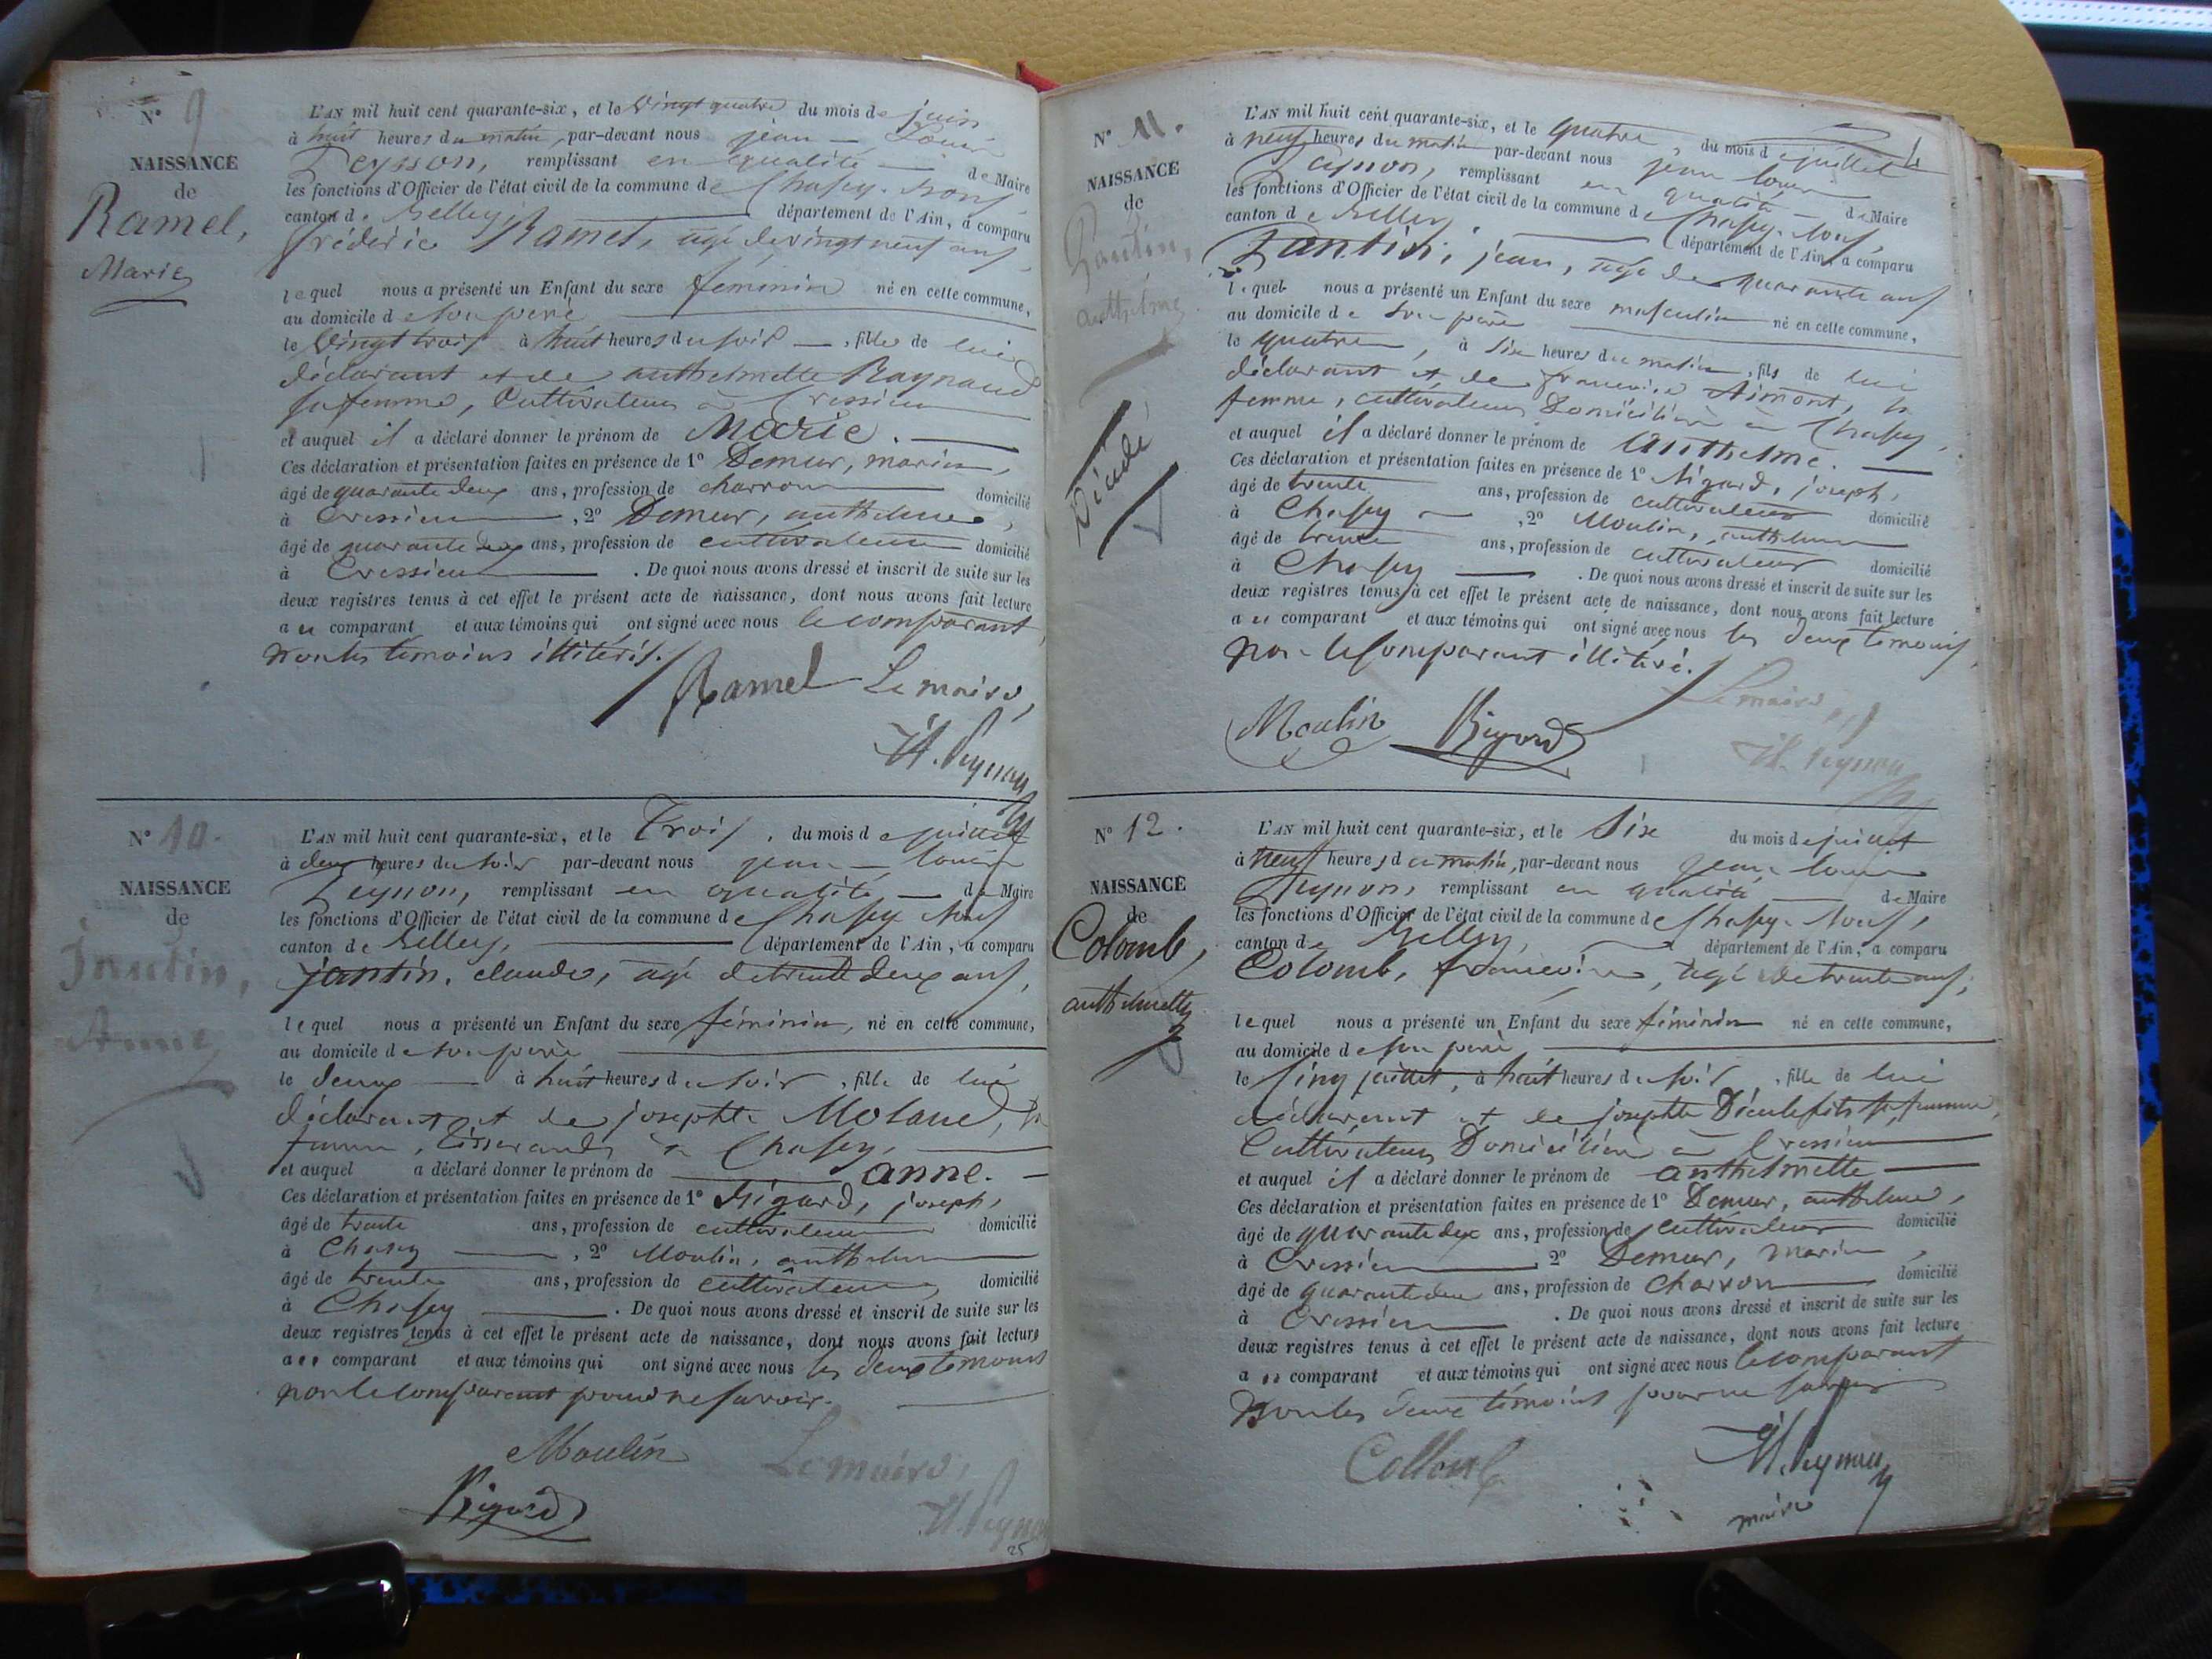 N° 9
NAISSANCE
de
Ramel,
Marie
L'AN mil huit cent quarante-six, et le vingt quatre du mois de juin
à huit heures du matin, par-devant nous jean – Louis
Peysson, remplissant en qualité — de Maire
les fonctions d'Officier de l'état civil de la commune de Chasey-
canton de Belley, département de l'Ain, a comparu
fréderic Ramel, agé de vingt neuf ans,
lequel nous a présenté un Enfant du sexe féminin né en cette commune,
au domicile de son père
le vingt trois à huit heures du soir —, fille de lui
déclarant et de anthelmette Raynaud
sa femme, Cultivateurs à Cressieu
et auquel il a déclaré donner le prénom de Marie.
Ces déclaration et présentation faites en présence de 1° Demeur, marin,
âgé de quarante deux ans, profession de charron domicilié
à Cressieu, 2° Demeur, anthelme,
âgé de quarante deux ans, profession de cultivateur domicilié
à Cressieu. De quoi nous avons dressé et inscrit de suite sur les
deux registres tenus à cet effet le présent acte de naissance, dont nous avons fait lecture
au comparant et aux témoins qui ont signé avec nous le comparant
non les témoins illitérés.
Ramel Le maire,
N° 10.
NAISSANCE
de
Jantin,
Anne
L'AN mil huit cent quarante-six, et le Trois, du mois de juillet
à deux heures du soir par-devant nous jean – louis
Peynon, remplissant en qualité — de Maire
les fonctions d'Officier de l'état civil de la commune de Chasey Neuf
canton de Belley, département de l'Ain, a comparu
jantin, claude, agé de trente deux ans,
lequel nous a présenté un Enfant du sexe féminin, né en cette commune,
au domicile de son père
le deux à huit heures du soir, fille de lui
déclarant et de josephte Moland, sa
femme, tisserands à Chasey,
et auquel a déclaré donner le prénom de anne.
Ces déclaration et présentation faites en présence de 1° Rigard, joseph,
âgé de trente ans, profession de cultivateur domicilié
à Chasey, 2° Moulin, anthelme
âgé de trente ans, profession de cultivateur, domicilié
à Chasey. De quoi nous avons dressé et inscrit de suite sur les
deux registres tenus à cet effet le présent acte de naissance, dont nous avons fait lecture
au comparant et aux témoins qui ont signé avec nous les deux témoins
non le comparant pour ne savoir.
Moulin Le maire,
Rigard
25
N° 11.
NAISSANCE
de
anthelme
L'AN mil huit cent quarante-six, et le quatre, du mois de juillet
à neuf heures du matin par-devant nous jean louis
Peynon, remplissant en qualité — de Maire
les fonctions d'Officier de l'état civil de la commune de Chasey-Neuf,
canton de Belley, département de l'Ain, a comparu
jean, agé de quarante ans
lequel nous a présenté un Enfant du sexe masculin né en cette commune,
au domicile de son père
le quatre, à six heures du matin, fils de lui
déclarant et de françoise Aimont, sa
femme, cultivateurs Domiciliés à Chasey,
et auquel il a déclaré donner le prénom de Anthelme.
Ces déclaration et présentation faites en présence de 1° Rigard, joseph,
âgé de trente ans, profession de cultivateur domicilié
à Chasey, 2° Moulin, anthelme
âgé de trente ans, profession de cultivateur domicilié
à Chasey. De quoi nous avons dressé et inscrit de suite sur les
deux registres tenus à cet effet le présent acte de naissance, dont nous avons fait lecture
au comparant et aux témoins qui ont signé avec nous les deux témoins,
non le Comparant illitéré.
Le maire,
Moulin Rigard
N° 12.
NAISSANCE
de
Colomb,
anthelmette
L'AN mil huit cent quarante-six, et le Six du mois de juillet
à neuf heures du matin, par-devant nous jean louis
Peynon, remplissant en qualité de Maire
les fonctions d'Officier de l'état civil de la commune de Chasey-Neuf,
canton de Belley, département de l'Ain, a comparu
Colomb, agé de trente ans,
lequel nous a présenté un Enfant du sexe féminin né en cette commune,
au domicile de son père
le cinq juillet, à huit heures du soir, fille de lui
déclarant et de josephte Dieulefits sa femme,
Cultivateurs Domiciliés à Cressieu
et auquel il a déclaré donner le prénom de anthelmette
Ces déclaration et présentation faites en présence de 1° Demeur, anthelme,
âgé de quarante deux ans, profession de cultivateur domicilié
à Cressieu 2° Demeur, marin,
âgé de quarante deux ans, profession de Charron domicilié
à Cressieu. De quoi nous avons dressé et inscrit de suite sur les
deux registres tenus à cet effet le présent acte de naissance, dont nous avons fait lecture
au comparant et aux témoins qui ont signé avec nous le comparant
non les deux témoins pour ne savoir
Collomb
maire